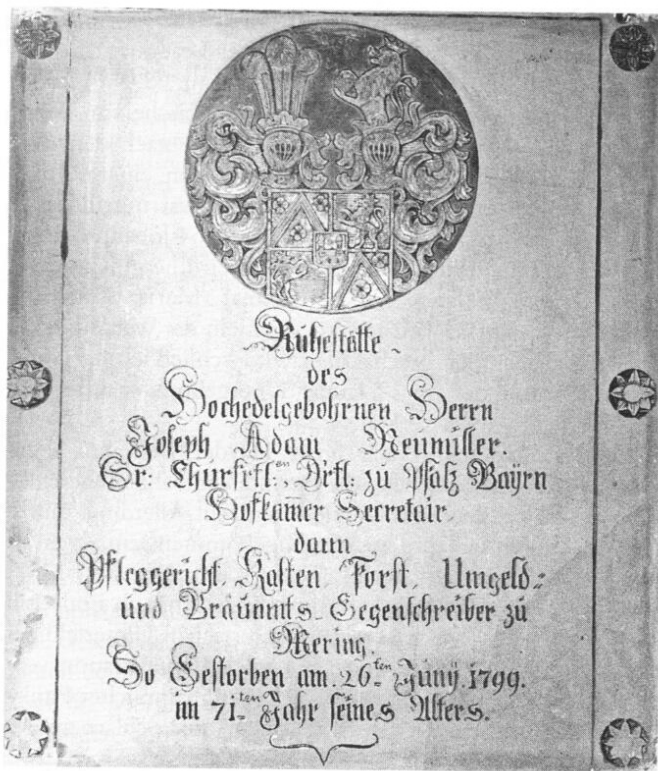 Ruhestätte
des
Hochedelgebohrnen Herrn
Joseph Adam Neumüller.
Sr: Churfrtl:en Drtl: zu Pfalz Bayrn
Hofkam̅er Secretair.
dann
Pfleggericht. Kasten. Forst. Umgeld=
und Bräuamts. Gegenschreiber zu
Mering.
So Gestorben am. 26.ten Junÿ. 1799.
im 71.ten Jahr seines Alters.